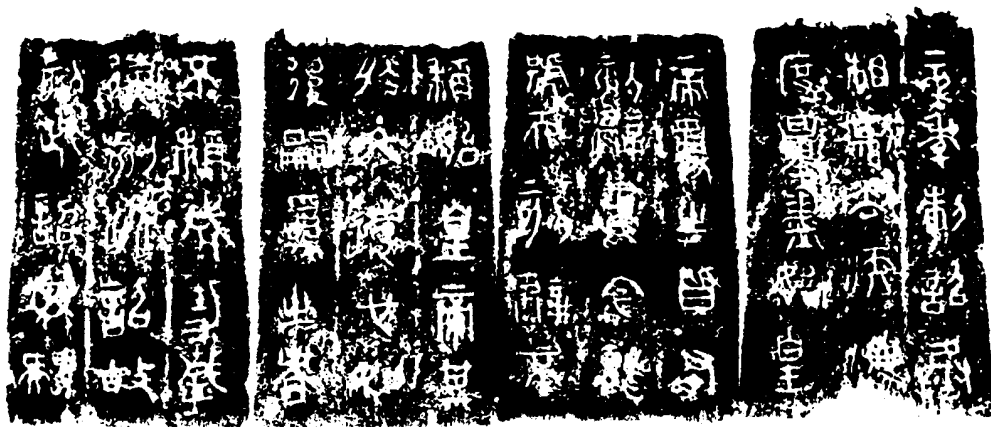 元年制詔丞
相斯去疾灋
度量盡始皇
帝爲之皆有
刻辭焉今襲
號而刻辭不
稱始皇帝其
於久遠也如
後嗣爲之者
不稱成功盛
德刻此詔故
刻左使毋疑